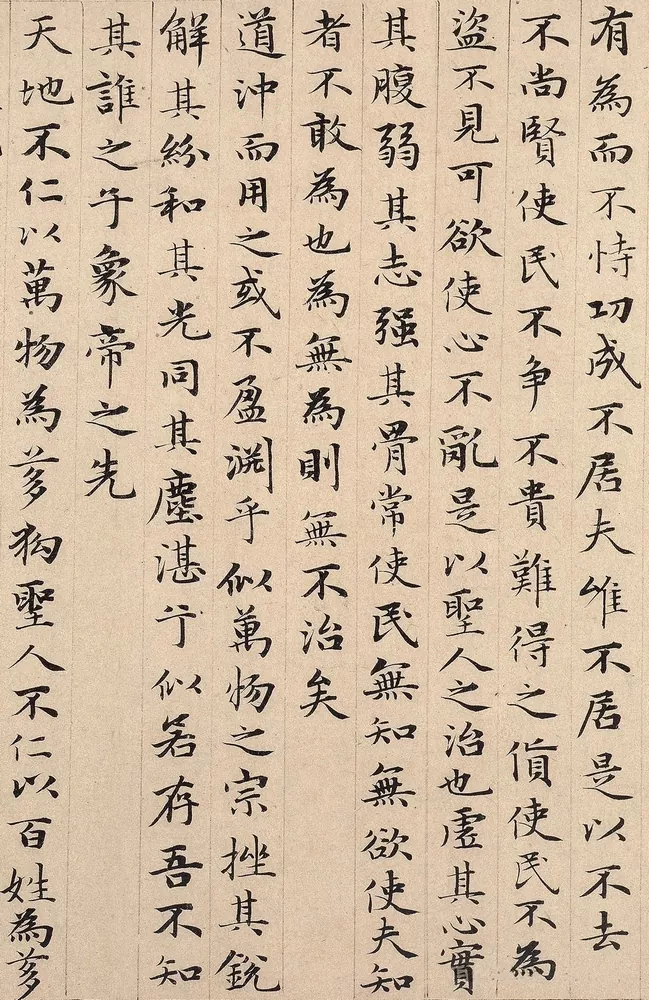 有為而不恃功成不居夫惟不居是以不去
不尚賢使民不争不貴難得之貨使民不為
盜不見可欲使心不亂是以聖人之治也虚其心實
其腹弱其志强其骨常使民無知無欲使夫知
者不敢為也為無為則無不治矣
道沖而用之或不盈淵乎似萬物之宗挫其銳
解其紛和其光同其塵湛兮似若存吾不知
其誰之子象帝之先
天地不仁以萬物為芻狗聖人不仁以百姓為芻